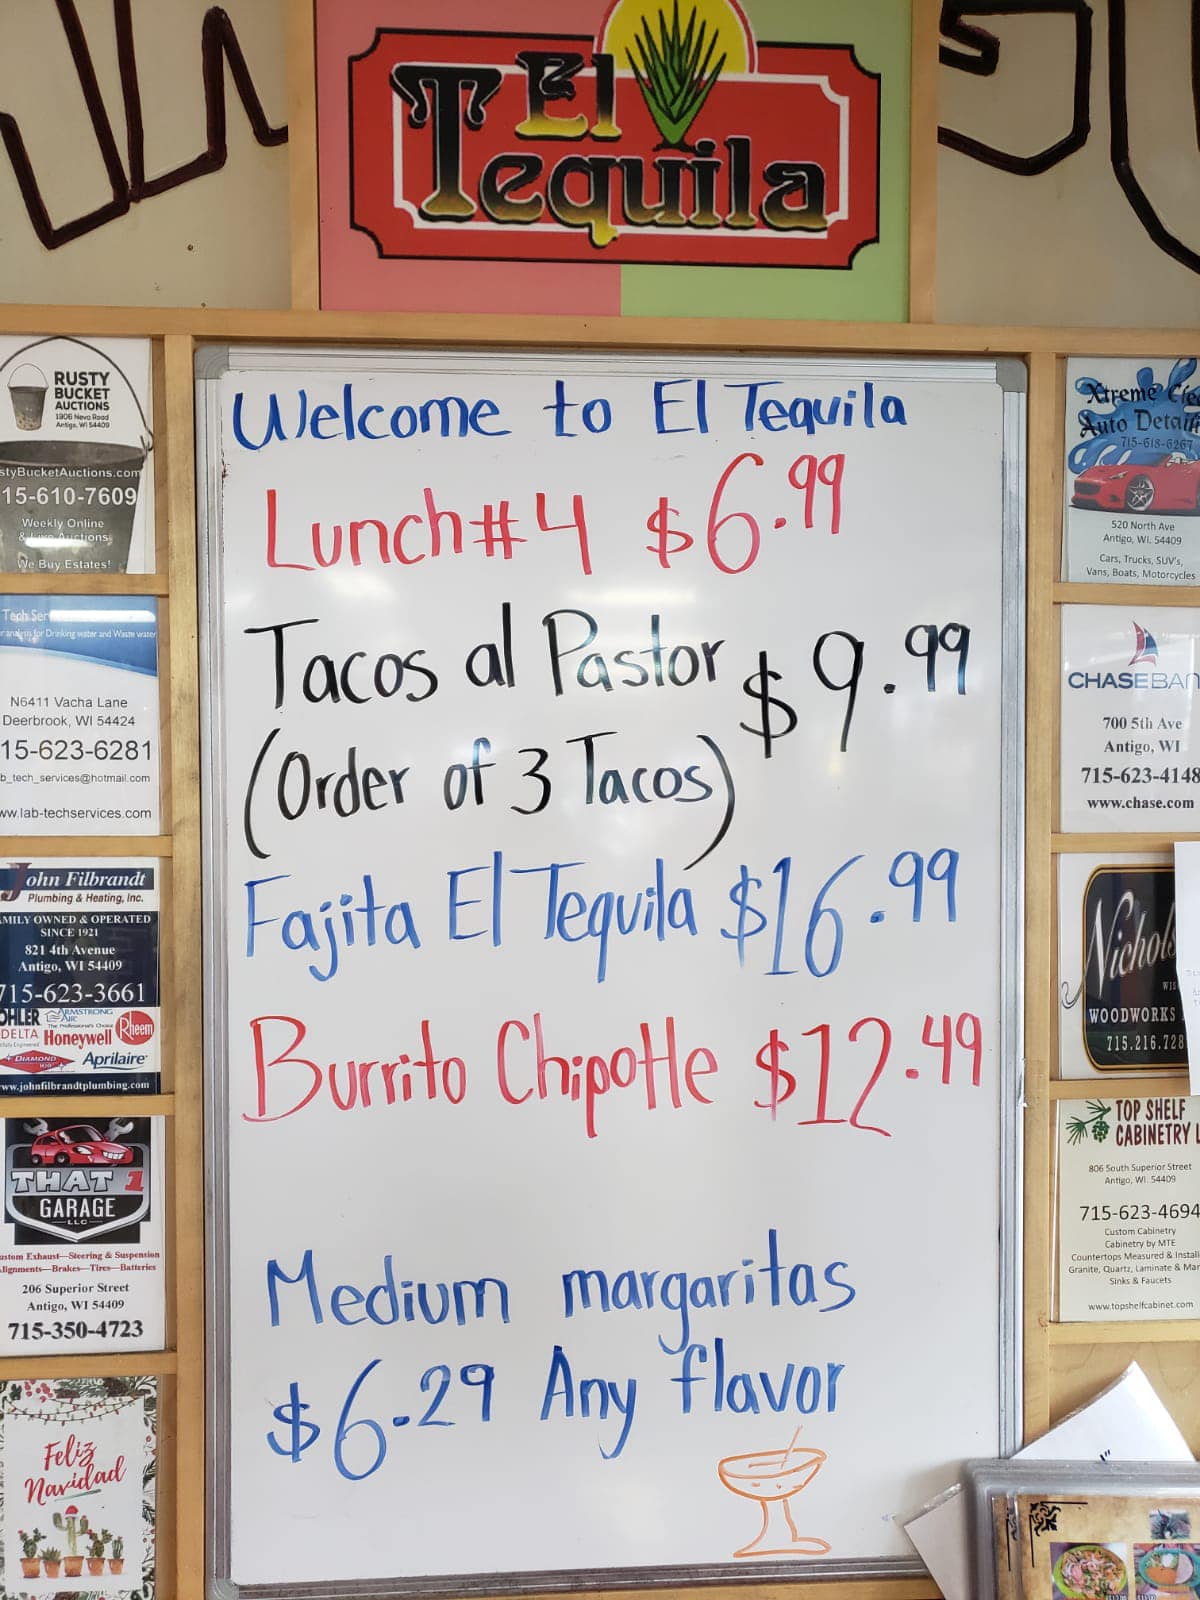 El
Tequila
Welcome to El Tequila
Lunch #4 $6.99
Tacos al Pastor $9.99
(Order of 3 Tacos)
Fajita El Tequila $16.99
Burrito Chipotle $12.49
Medium margaritas
$6.29 Any flavor
RUSTY
BUCKET
AUCTIONS
1906 Neva Road
Antigo, WI 54409
styBucketAuctions.com
15-610-7609
Weekly Online
& Live Auctions
We Buy Estates!
Tech Ser
r analysis for Drinking water and Waste water
N6411 Vacha Lane
Deerbrook, WI 54424
15-623-6281
b_tech_services@hotmail.com
ww.lab-techservices.com
John Filbrandt
Plumbing & Heating, Inc.
AMILY OWNED & OPERATED
SINCE 1921
821 4th Avenue
Antigo, WI 54409
715-623-3661
OHLER ARMSTRONG AIR
The Professional's Choice
DELTA Honeywell Rheem
DIAMOND Aprilaire
ww.johnfilbrandtplumbing.com
THAT 1
GARAGE
LLC
ustom Exhaust—Steering & Suspension
lignments—Brakes—Tires—Batteries
206 Superior Street
Antigo, WI 54409
715-350-4723
Feliz
Navidad
Xtreme Clea
Auto Detaili
715-618-6267
520 North Ave
Antigo, WI. 54409
Cars, Trucks, SUV's,
Vans, Boats, Motorcycles
CHASE BAN
700 5th Ave
Antigo, WI
715-623-4148
www.chase.com
Nichols
WIS
WOODWORKS
715.216.728
TOP SHELF
CABINETRY L
806 South Superior Street
Antigo, WI. 54409
715-623-4694
Custom Cabinetry
Cabinetry by MTE
Countertops Measured & Install
Granite, Quartz, Laminate & Mar
Sinks & Faucets
www.topshelfcabinet.com